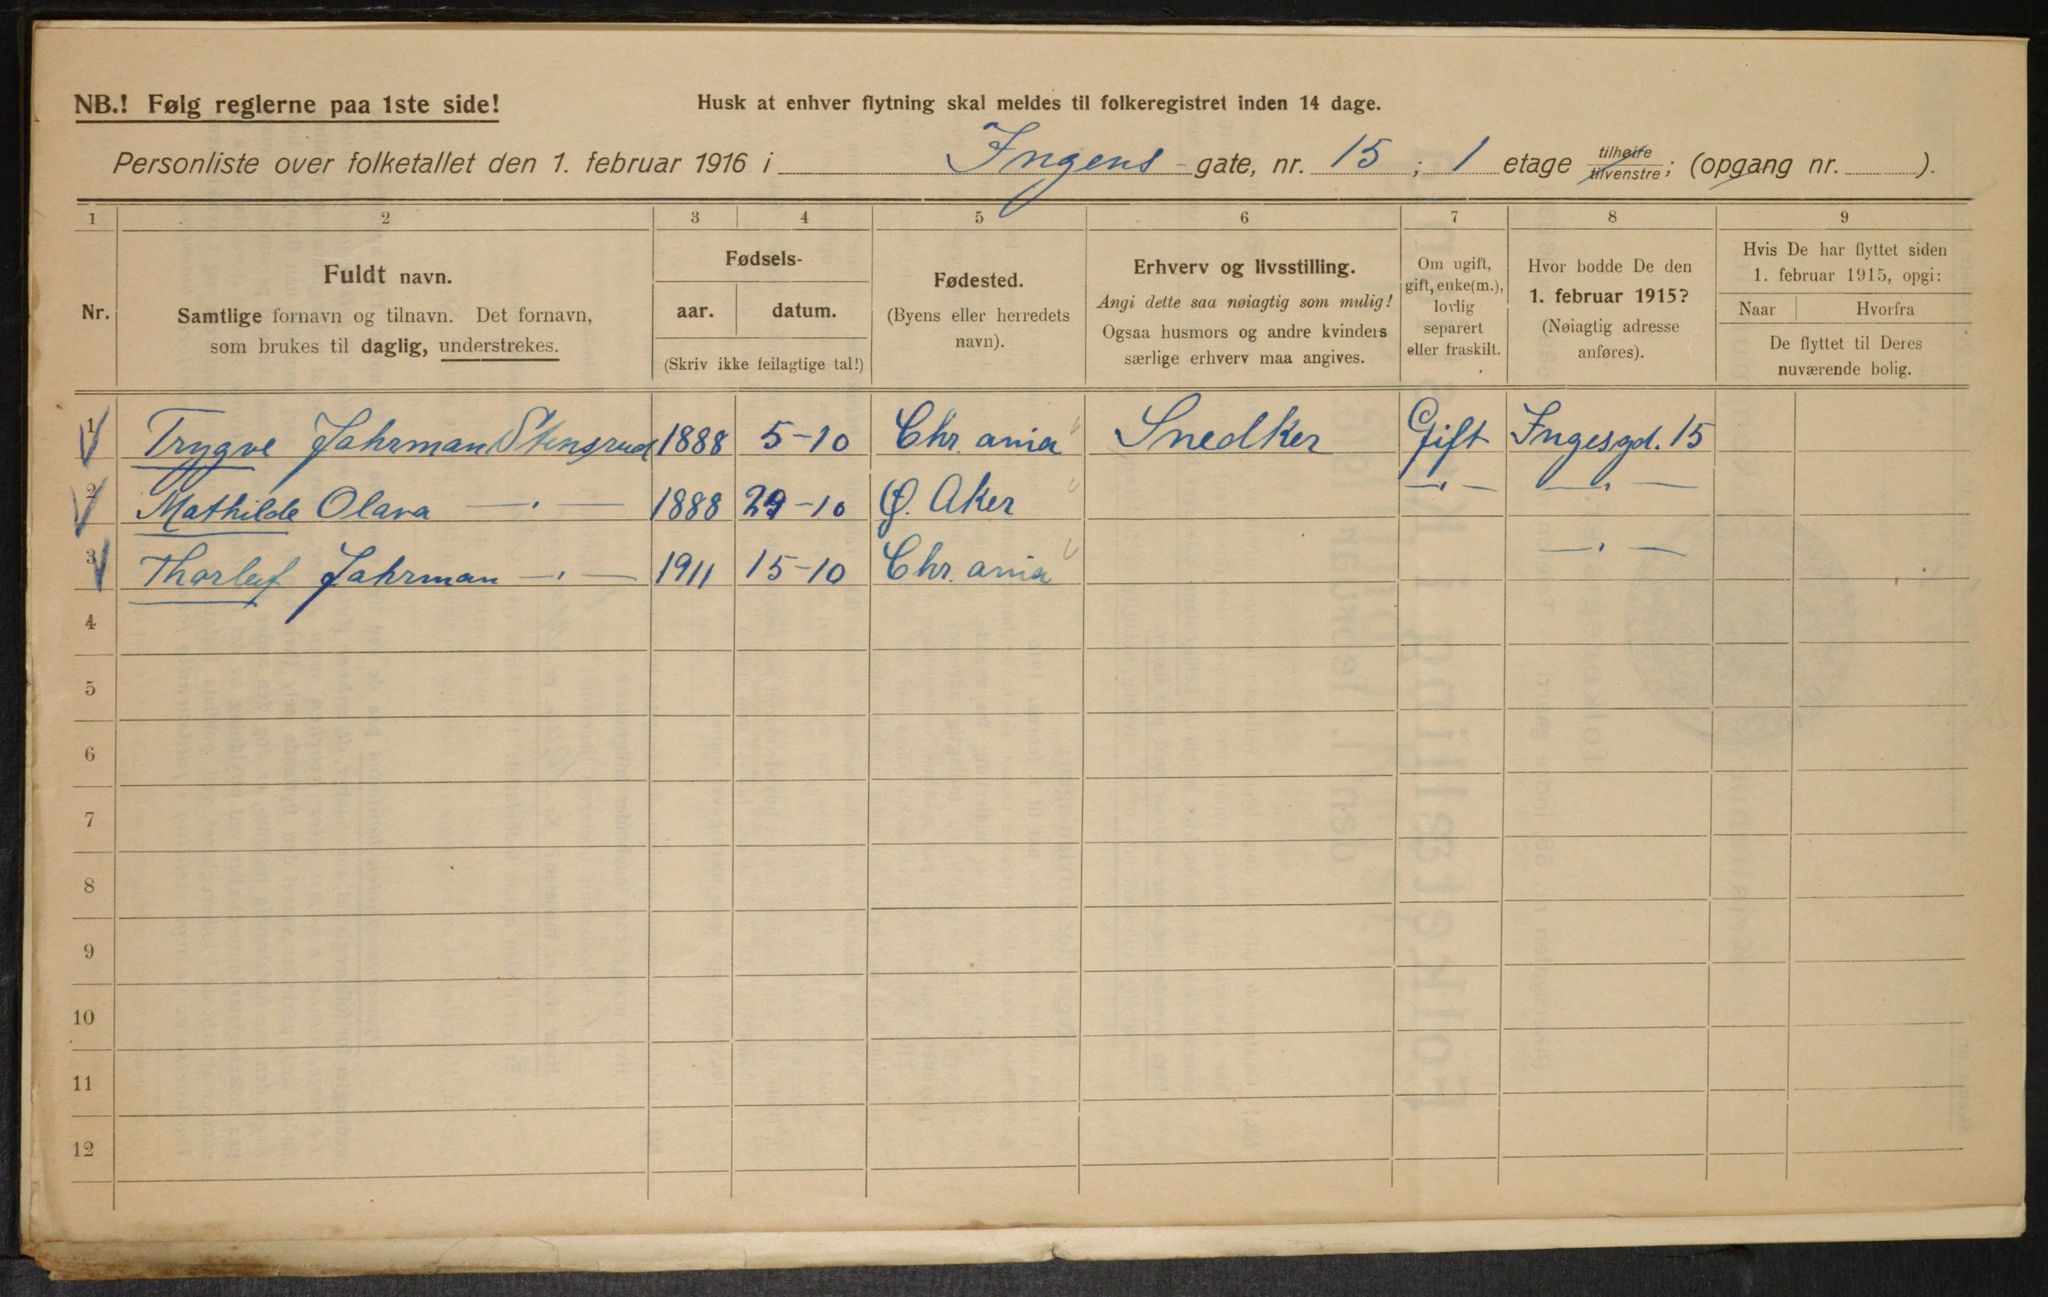 NB.! Følg reglerne paa 1ste side!
Husk at enhver flytning skal meldes til folkeregistret inden 14 dage.
Personliste over folketallet den 1. februar 1916 i Ingens-gate, nr. 15; 1 etage tilhøire tilvenstre; (opgang nr. ).
1 2 3 4 5 6 7 8 9
Nr.
Fuldt navn.
Samtlige fornavn og tilnavn. Det fornavn,
som brukes til daglig, understrekes.
Fødsels-
aar. datum.
(Skriv ikke feilagtige tal!)
Fødested.
(Byens eller herredets
navn).
Erhverv og livsstilling.
Angi dette saa nøiagtig som mulig!
Ogsaa husmors og andre kvinders
særlige erhverv maa angives.
Om ugift,
gift, enke(m.),
lovlig
separert
eller fraskilt.
Hvor bodde De den
1. februar 1915?
(Nøiagtig adresse
anføres).
Hvis De har flyttet siden
1. februar 1915, opgi:
Naar Hvorfra
De flyttet til Deres
nuværende bolig.
1 Trygve Jahrman Stensrud 1888 5-10 Chr. ania Snedker Gift Ingesgd. 15
2 Mathilde Olava —„— 1888 29-10 Ø. Aker —„— —„—
3 Thorleif Jahrman —„— 1911 15-10 Chr. ania —„—
4
5
6
7
8
9
10
11
12